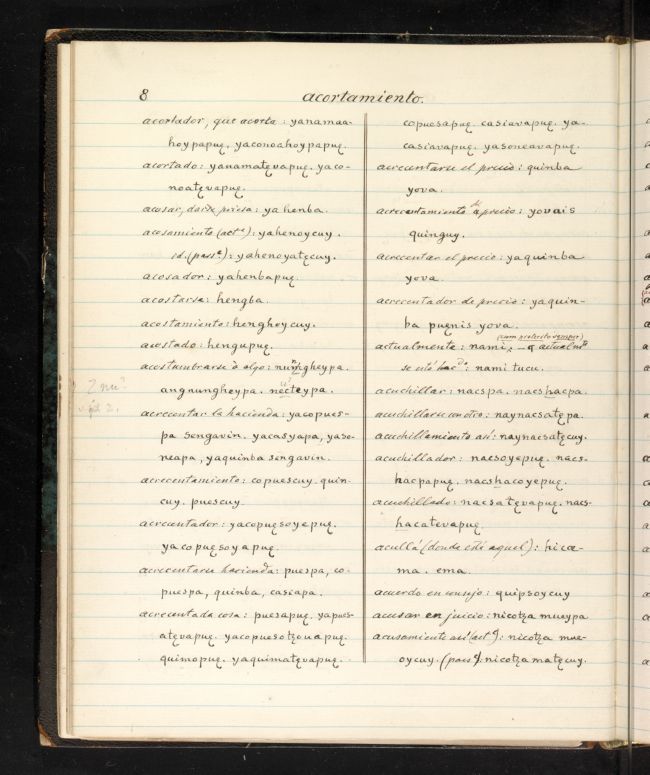 8
acortamiento.
acortador, que acorta: yanamaa-
hoypapuȩ. yaconoahoypapuȩ.
acortado: yanamatȩvapuȩ. yaco-
noatȩvapuȩ.
acosar, darse priesa: yahenba.
acosamiento (actᵉ): yahenoycuy.
id. (passᵉ): yahenoyatȩcuy.
acosador: yahenbapuȩ.
acostarse: hengba.
acostamiento: henghoycuy.
acostado: hengupuȩ.
acostumbrarse á algo: nungheypa.
angnungheypa. nȩcteypa.
acrecentar la hacienda: yacopues-
pa sengavin. yacasyapa, yaso-
neapa, yaquinba sengavin.
acrecentamiento: copuescuy. quin-
cuy. puescuy.
acrecentador: yacopuȩsoyepuȩ.
yacopuȩsoyapuȩ.
acrecentarse hacienda: puespa, co-
puespa, quinba, casiapa.
acrecentada cosa: puesapuȩ. yapues-
atȩvapuȩ. yacopuesotzouapuȩ.
quimopuȩ. yaquimatȩvapuȩ.
copuesapuȩ. casiavapuȩ. ya-
casiavapuȩ. yasoneavapuȩ.
acrecentarse el precio: quinba
yova.
acrecentamiento de precio: yovais
quinguy.
acrecentar el precio: yaquinba
yova.
acrecentador de precio: yaquin-
ba puȩnis yova.
(cum preterito semper)
actualmente: nami,
se está hacdo: nami tucu.
acuchillar: nacspa. nacshacpa.
acuchillarse con otro: naynacsatȩpa.
acuchillamiento así: naynacsatȩcuy.
acuchillador: nacsoyepuȩ. nacs-
hacpapuȩ. nacshacoyepuȩ.
acuchillado: nacsatȩvapuȩ. nacs-
hacatevapuȩ.
acullá (donde está aquel): hicȩ-
ma. ema.
acuerdo en consejo: quipsoycuy
acusar en juicio: nicotza mueypa
acusamiento así (actᵉ): nicotza mue-
oycuy. (passᵉ): nicotzamatȩcuy.